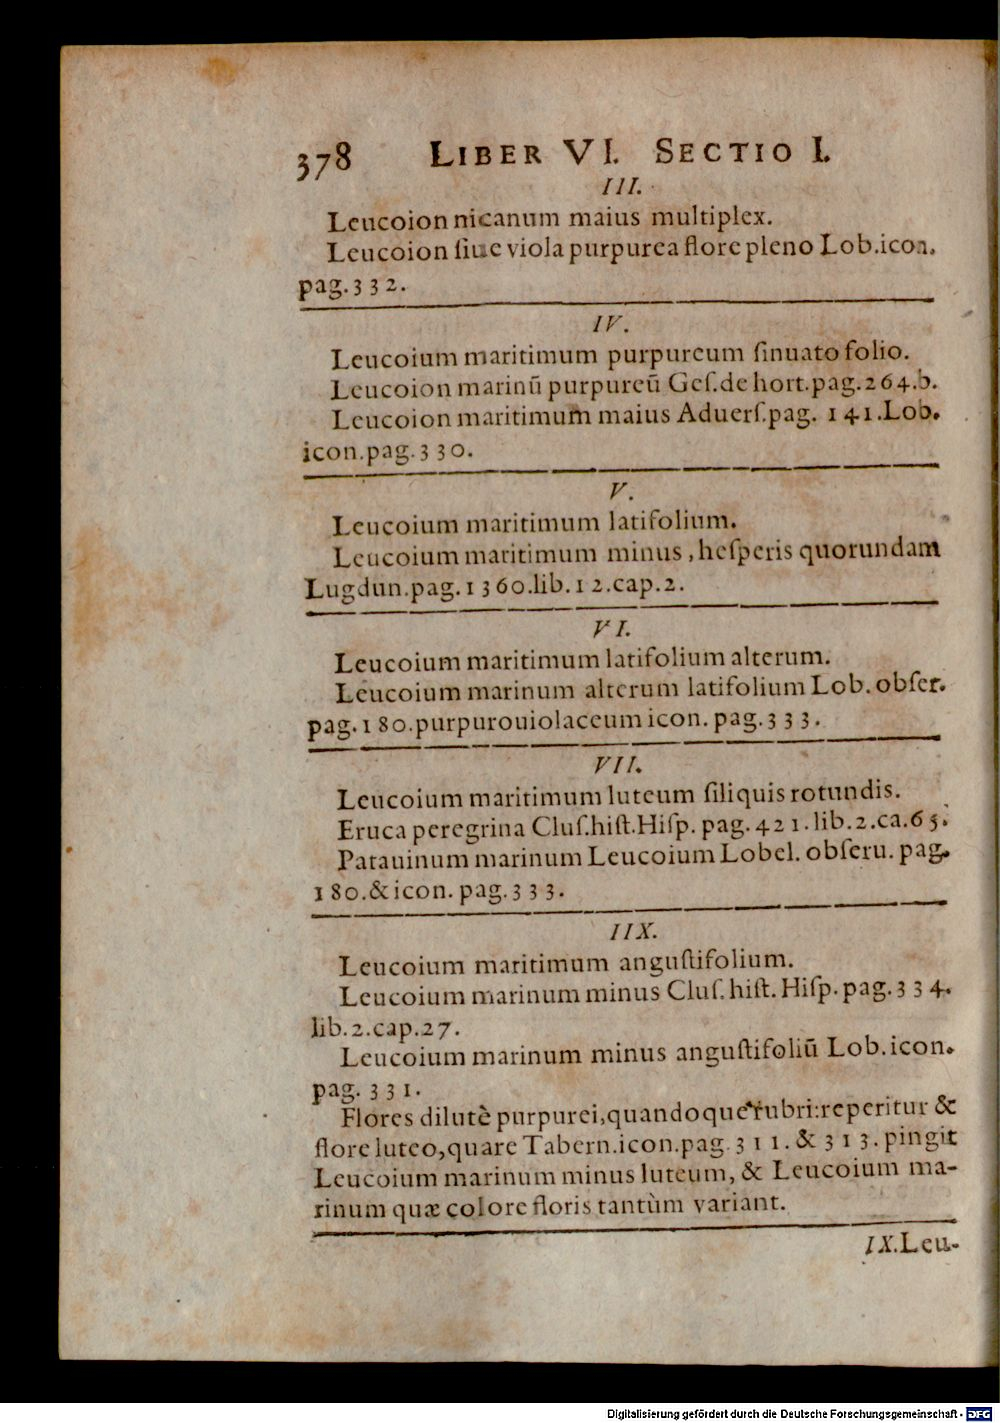 378 LIBER VI. SECTIO I.
III.
Leucoion nicanum maius multiplex.
Leucoion ſiue viola purpurea flore pleno Lob.icon.
pag.332.
IV.
Leucoium maritimum purpureum ſinuato folio.
Leucoion marinū purpureū Geſ.de hort.pag.264.b.
Leucoion maritimum maius Aduerſ.pag. 141.Lob.
icon.pag.330.
V.
Leucoium maritimum latifolium.
Leucoium maritimum minus, heſperis quorundam
Lugdun.pag.1360.lib.12.cap.2.
VI.
Leucoium maritimum latifolium alterum.
Leucoium marinum alterum latifolium Lob. obſer.
pag.180.purpurouiolaceum icon. pag.333.
VII.
Leucoium maritimum luteum ſiliquis rotundis.
Eruca peregrina Cluſ.hiſt.Hiſp. pag.421.lib.2.ca.65.
Patauinum marinum Leucoium Lobel. obſeru. pag.
180.& icon. pag.333.
IIX.
Leucoium maritimum anguſtifolium.
Leucoium marinum minus Cluſ. hiſt. Hiſp. pag.334.
lib.2.cap.27.
Leucoium marinum minus anguſtifoliū Lob.icon.
pag. 331.
Flores dilutè purpurei,quandoque rubri:reperitur &
flore luteo,quare Tabern.icon.pag.311.& 313.pingit
Leucoium marinum minus luteum, & Leucoium ma-
rinum quæ colore floris tantùm variant.
IX.Leu-
Digitalisierung gefördert durch die Deutsche Forschungsgemeinschaft - DFG